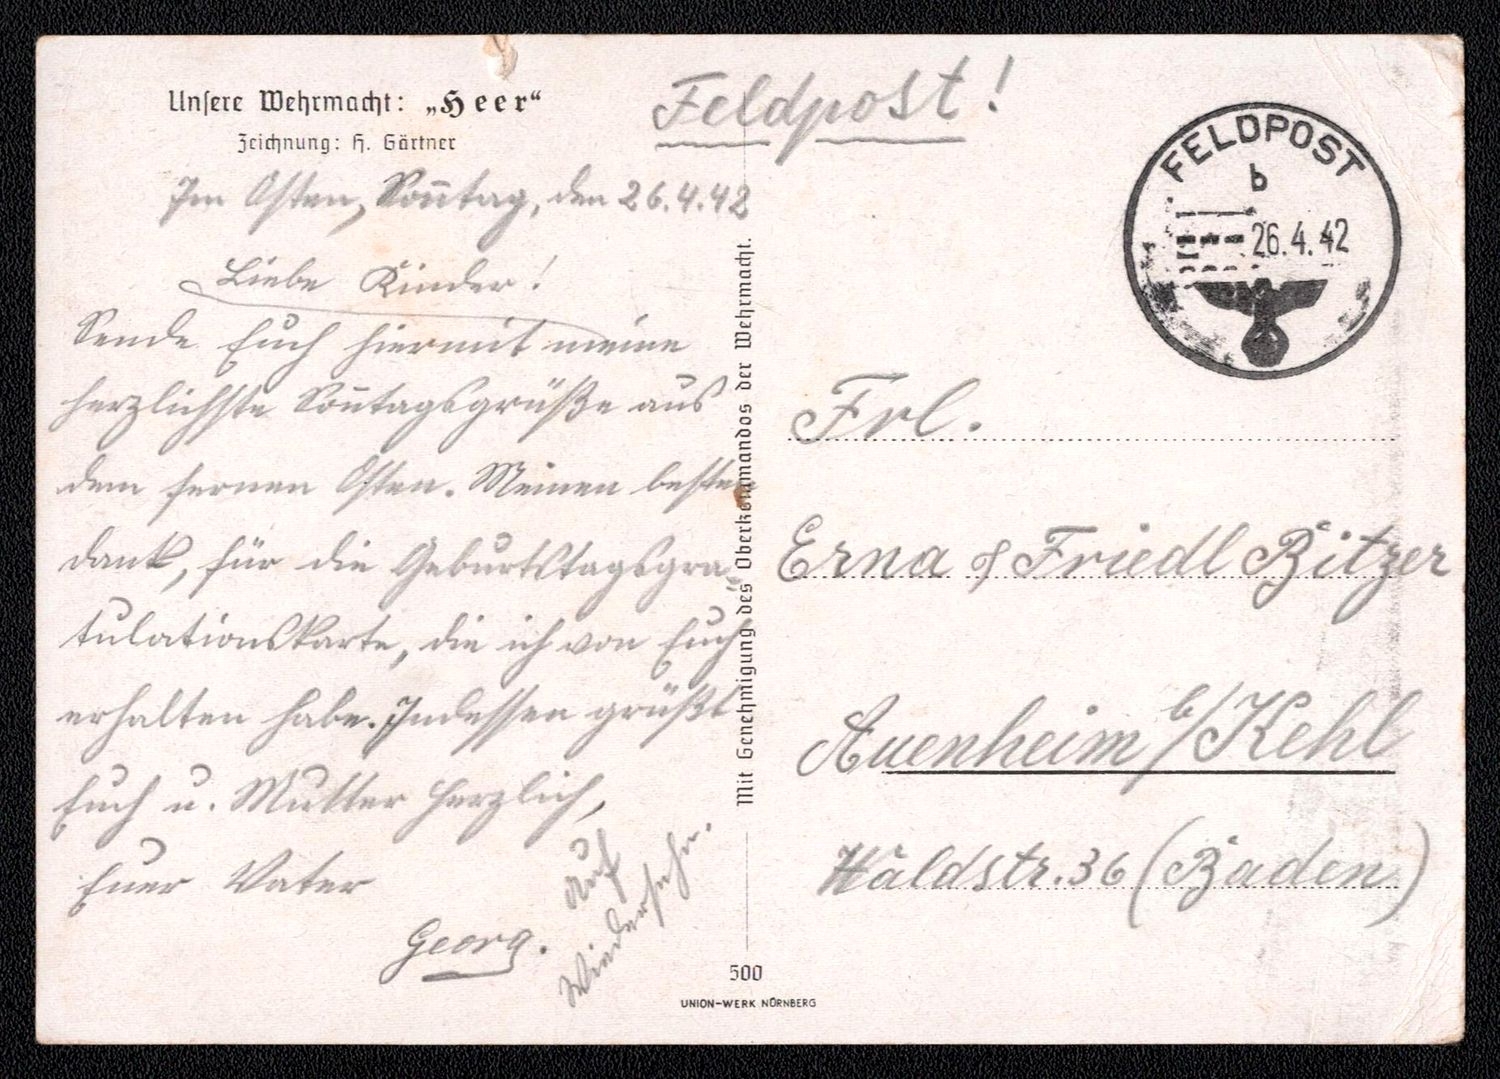 Unsere Wehrmacht: „Heer“
Zeichnung: H. Gärtner
Feldpost!
FELDPOST
b
26.4.42
Im Osten, Sonntag, den 26.4.42
Liebe Kinder!
Sende Euch hiermit meine
herzlichste Sonntagsgrüße aus
dem fernen Osten. Meinen besten
Dank, für die Geburtstagsgra-
tulationskarte, die ich von Euch
erhalten habe. Indessen grüßt
Euch u. Mutter herzlich,
Euer Vater
Georg.
Auf
Wiedersehn.
Mit Genehmigung des Oberkommandos der Wehrmacht.
Frl.
Erna & Friedl Bitzer
Auenheim b/Kehl
Waldstr. 36 (Baden)
500
UNION-WERK NÜRNBERG